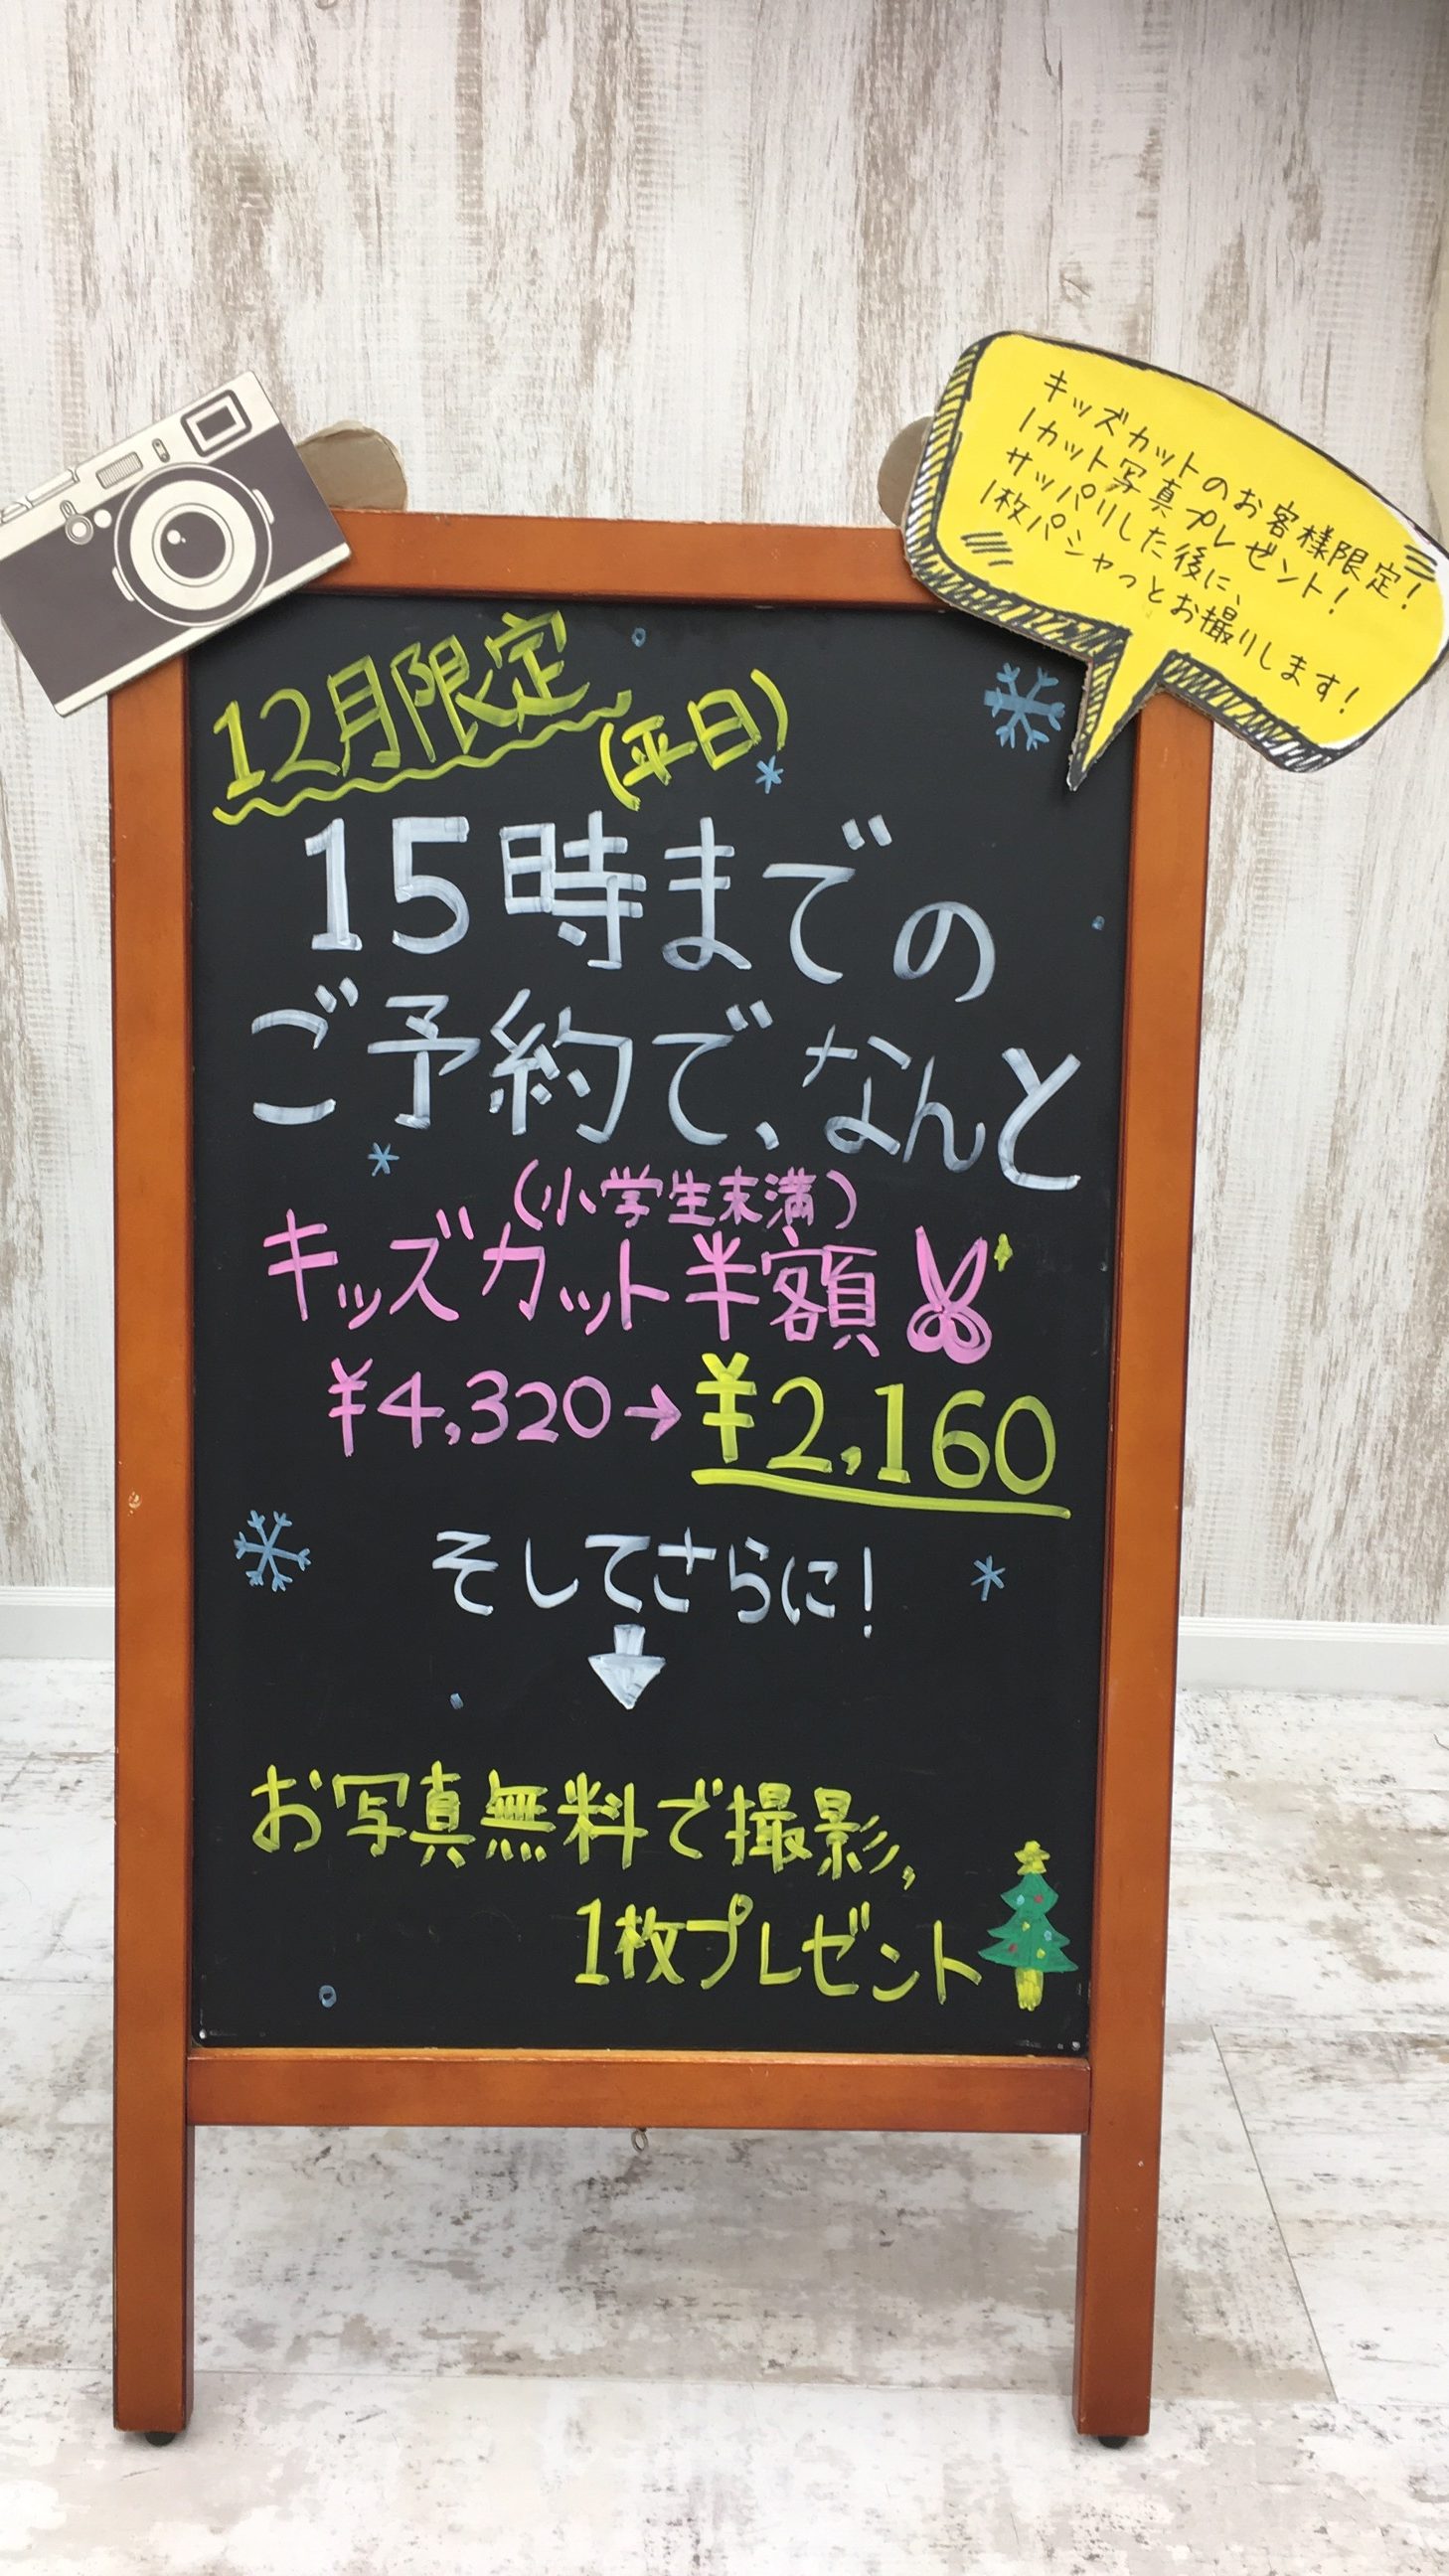 キッズカットのお客様限定!
1カット写真プレゼント!
サッパリした後に、
1枚パシャっとお撮りします!
12月限定
(平日)
15時までの
ご予約で、なんと
(小学生未満)
キッズカット半額
¥4,320→¥2,160
そしてさらに!
お写真無料で撮影,
1枚プレゼント